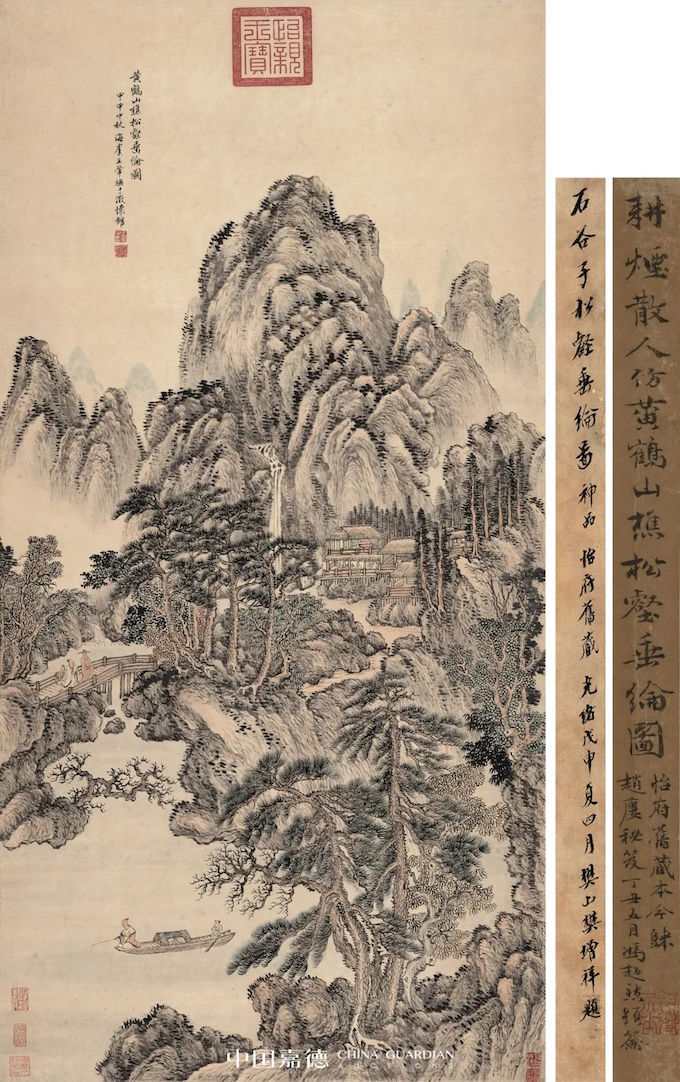 怡親王寶
黃鶴山樵松壑垂綸圖
甲申中秋海虞王翬橅于澂懷館
耕煙散人仿黃鶴山樵松壑垂綸圖
怡府舊藏本今歸
趙廔秘笈丁丑五月馮超然題籤
石谷子松壑垂綸圖神品 怡府舊藏 光緒戊申夏四月樊山樊增祥題
中国嘉德 CHINA GUARDIAN
AUCTIONS